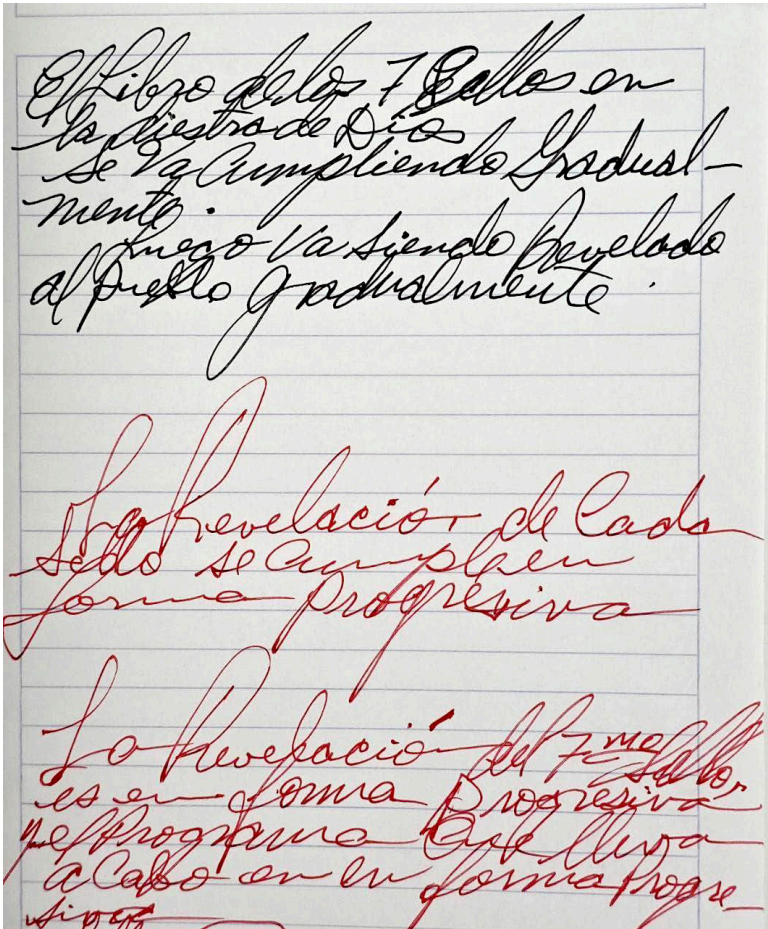 El Libro de los 7 Sellos en
la diestra de Dios
se va Cumpliendo Gradual-
mente.
Luego va siendo Revelado
al pueblo gradualmente.
La Revelación de Cada
Sello se cumple en
forma Progresiva
La Revelación del 7mo Sello,
es en forma Progresiva
y el Programa Que lleva
a Cabo en en forma Progre-
siva